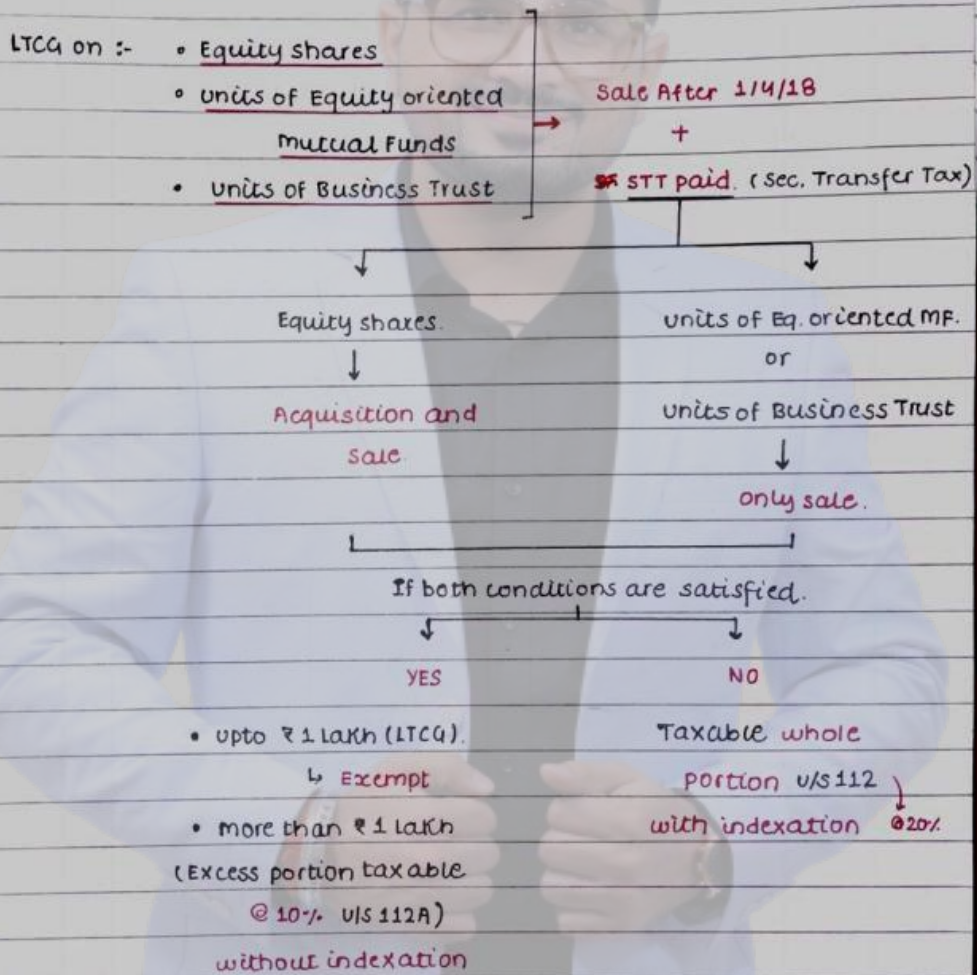 LTCG on :- • Equity shares
• units of Equity oriented
mutual Funds
• units of Business Trust
Sale After 1/4/18
+
STT paid. (Sec. Transfer Tax)
Equity shares.
Acquisition and
sale
units of Eq. oriented MF.
or
units of Business Trust
only sale.
If both conditions are satisfied.
YES
• upto ₹ 1 Lakh (LTCG).
↳ Exempt
• more than ₹ 1 Lakh
(Excess portion taxable
@ 10% U/S 112A)
without indexation
NO
Taxable whole
portion U/S 112
with indexation @20%